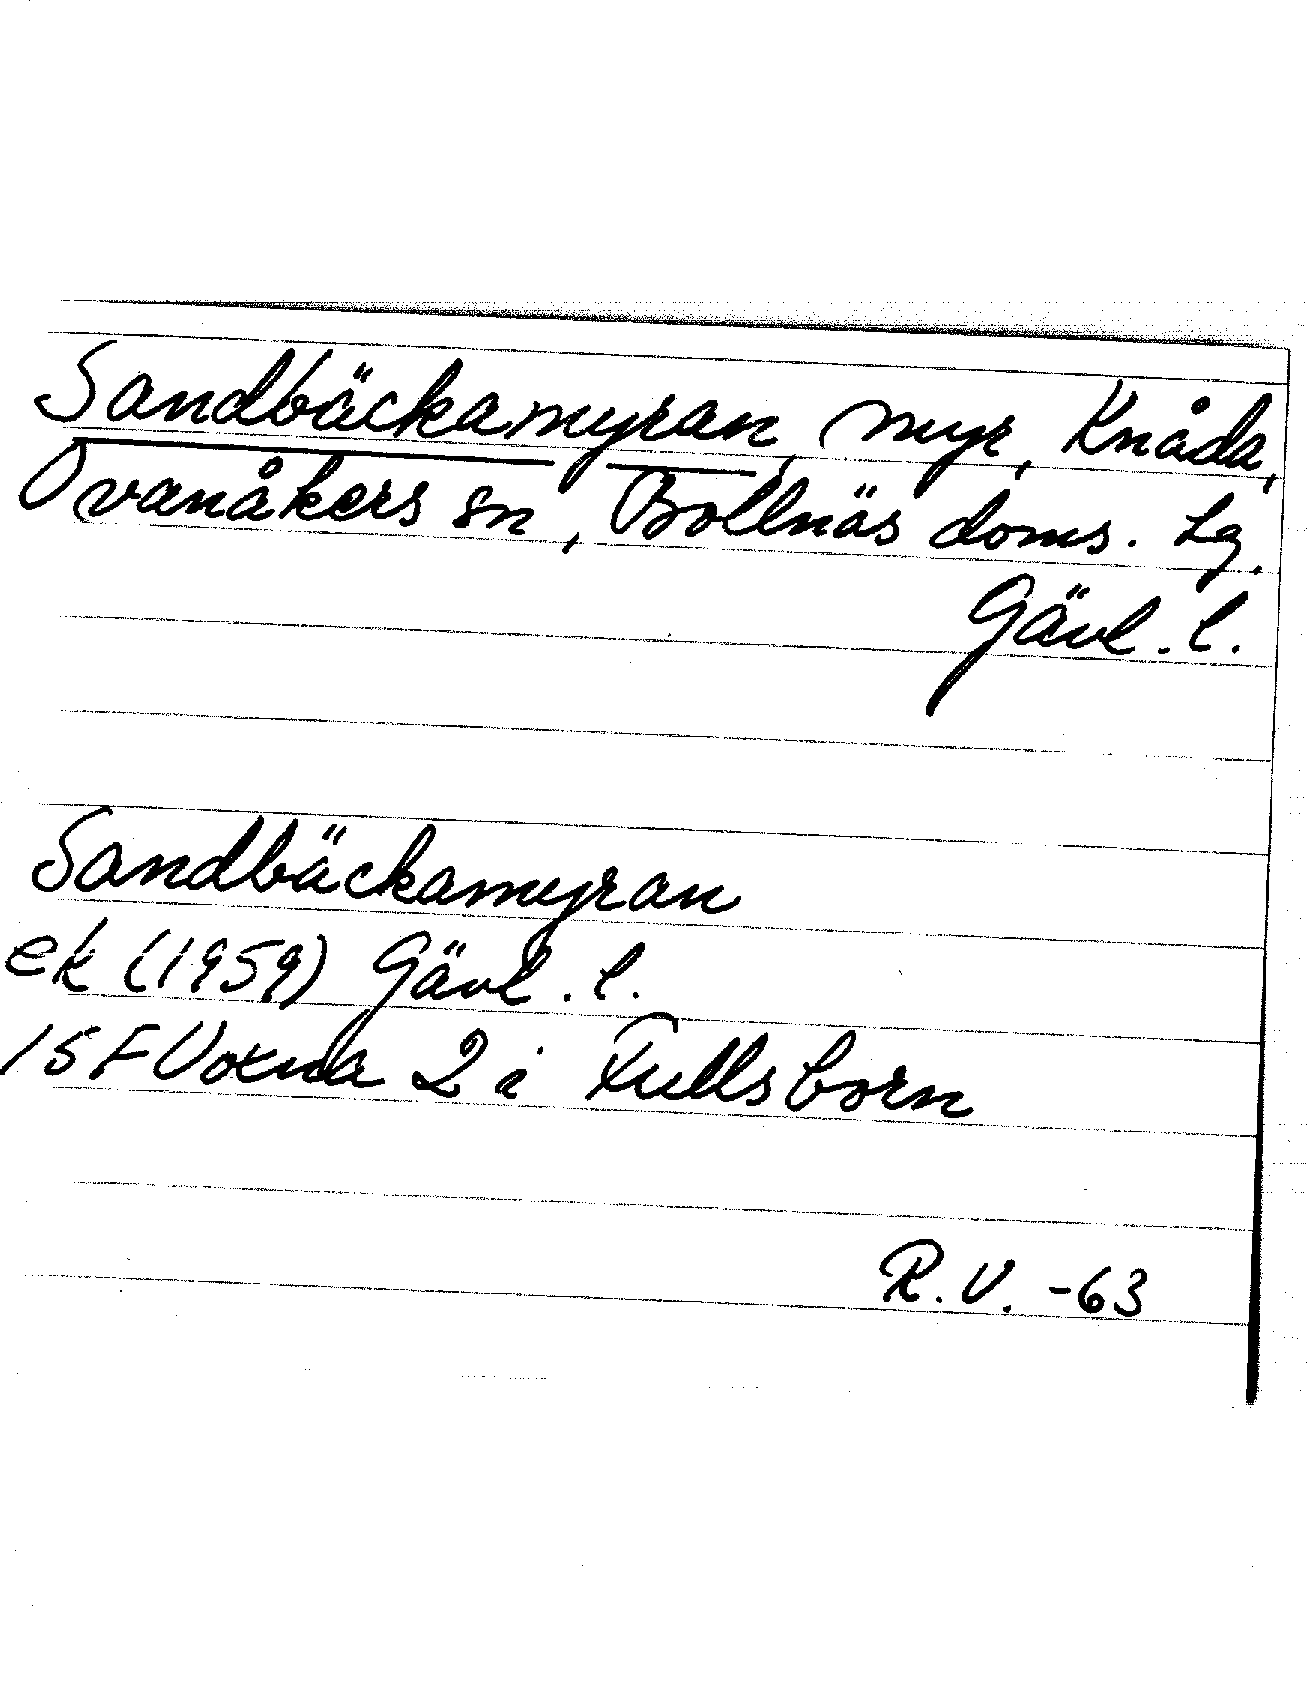 Sandbäckamyran, myr, Knåda,
Ovanåkers sn, Bollnäs doms. Lg.
Gävl. l.
Sandbäckamyran
ek (1959) Gävl. l.
15 F Voxna 2 i Fullsborn
R.V. -63